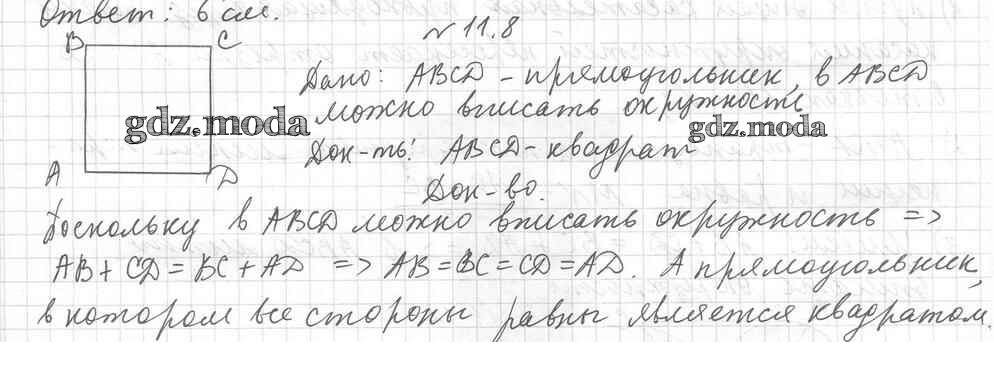 Ответ: 6 см.
N 11.8
B C
Дано: ABCD - прямоугольник, в ABCD
можно вписать окружность
gdz.moda
gdz.moda
Док-ть: ABCD - квадрат
A D
Док-во.
Поскольку в ABCD можно вписать окружность =>
AB + CD = BC + AD => AB = BC = CD = AD. А прямоугольник,
в котором все стороны равны является квадратом.